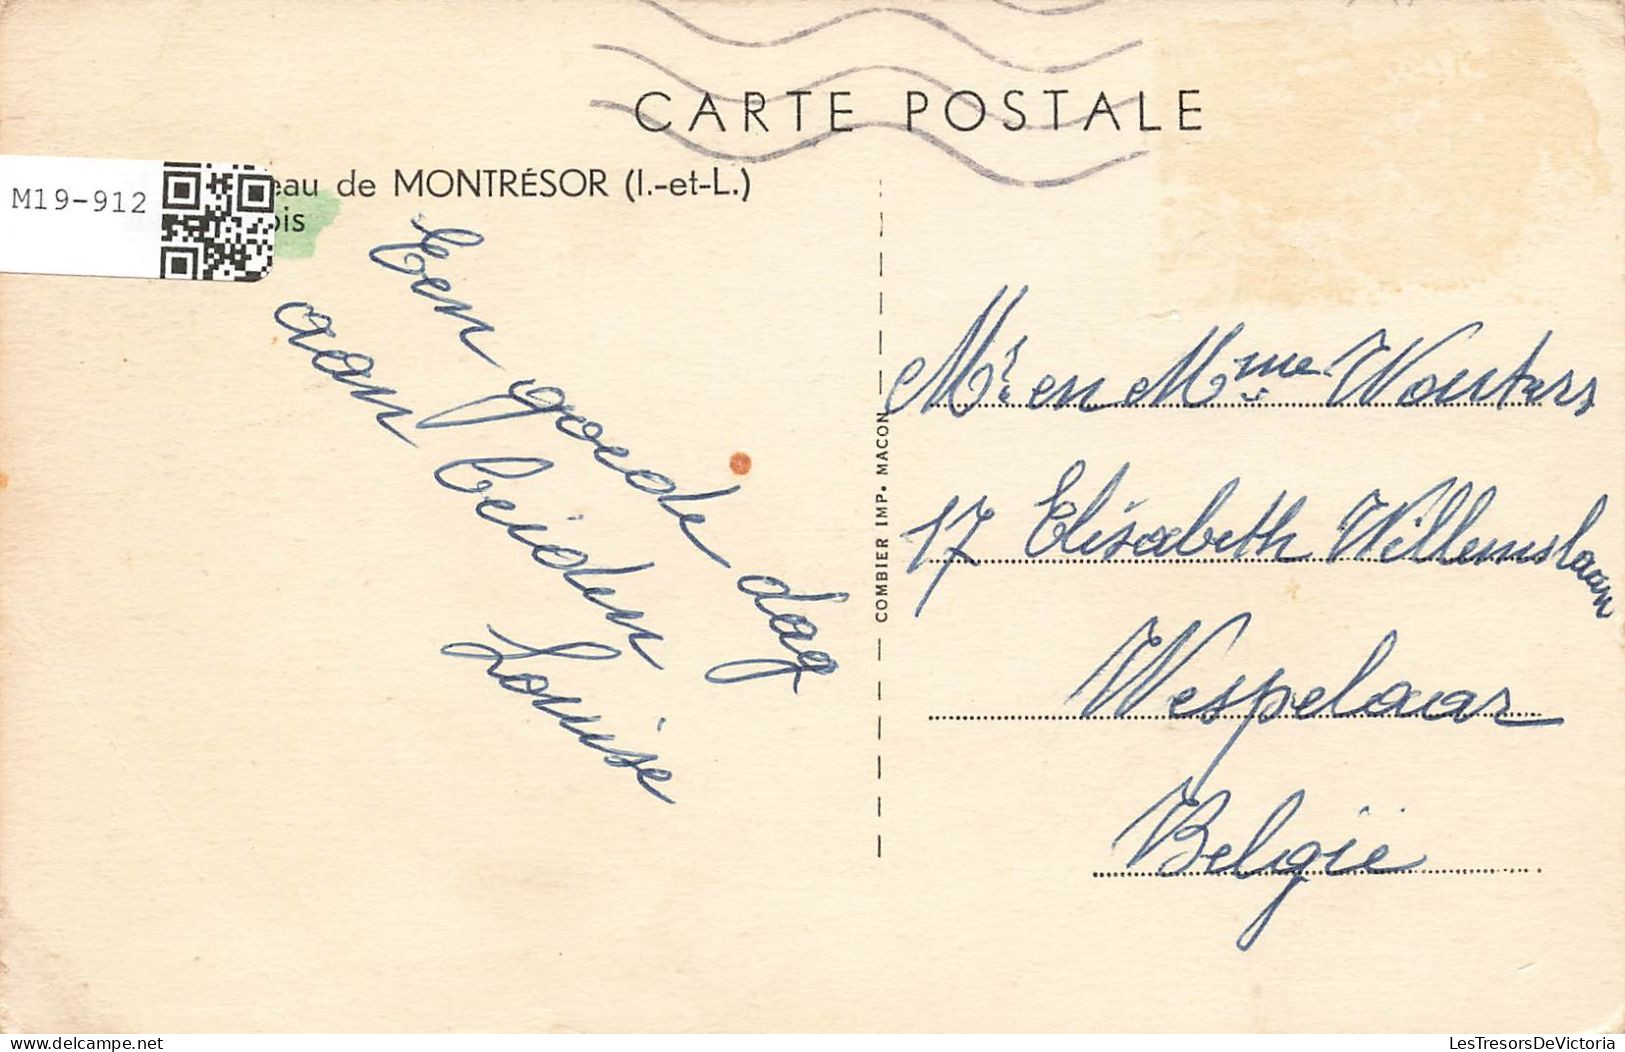 CARTE POSTALE
M19-912
eau de MONTRÉSOR (I.-et-L.)
ois
Een goede dag
aan beiden
Louise
COMBIER IMP. MACON
Mr. en Mme Wouters
17 Elisabeth Willemslaan
Wespelaar
Belgïe
LesTresorsDeVictoria
delcampe.net